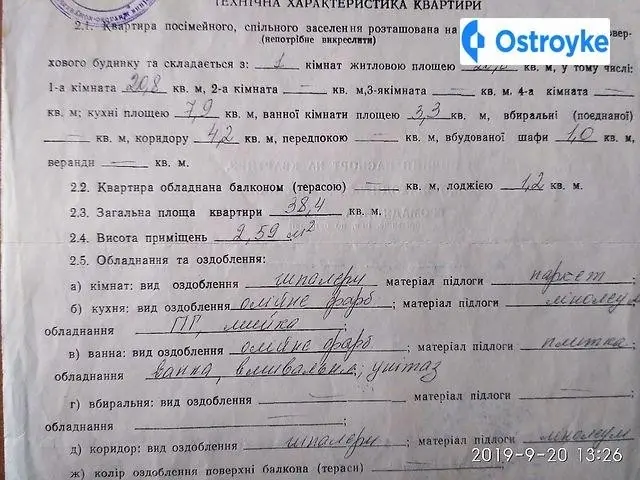 ТЕХНІЧНА ХАРАКТЕРИСТИКА КВАРТИРИ
Ostroyke
2.1. Квартира посімейного, спільного заселення розташована на повер-
(непотрібне викреслити)
хового будинку та складається з: 1 кімнат житловою площею 20,8 кв. м, у тому числі:
1-а кімната 20,8 кв. м, 2-а кімната — кв. м,3-якімната — кв. м. 4-а кімната —
кв. м; кухні площею 7,9 кв. м, ванної кімнати площею 3,3 кв. м, вбиральні (поєднаної)
— кв. м, коридору 4,2 кв. м, передпокою — кв. м, вбудованої шафи 1,0 кв. м,
веранди — кв. м.
2.2. Квартира обладнана балконом (терасою) — кв. м, лоджією 1,2 кв. м.
2.3. Загальна площа квартири 38,4 кв. м.
2.4. Висота приміщень 2,59 м²
2.5. Обладнання та оздоблення:
а) кімнат: вид оздоблення шпалери матеріал підлоги паркет ;
б) кухня: вид оздоблення олійне фарб ; матеріал підлоги лінолеум
обладнання ПГ, мийка ;
в) ванна: вид оздоблення олійне фарб ; матеріал підлоги плитка ;
обладнання ванна, вмивальник, унітаз
г) вбиральня: вид оздоблення — ; матеріал підлоги — ;
обладнання — ;
д) коридор: вид оздоблення шпалери ; матеріал підлоги лінолеум
ж) колір оздоблення поверхні балкона (тераси) —
2019-9-20 13:26